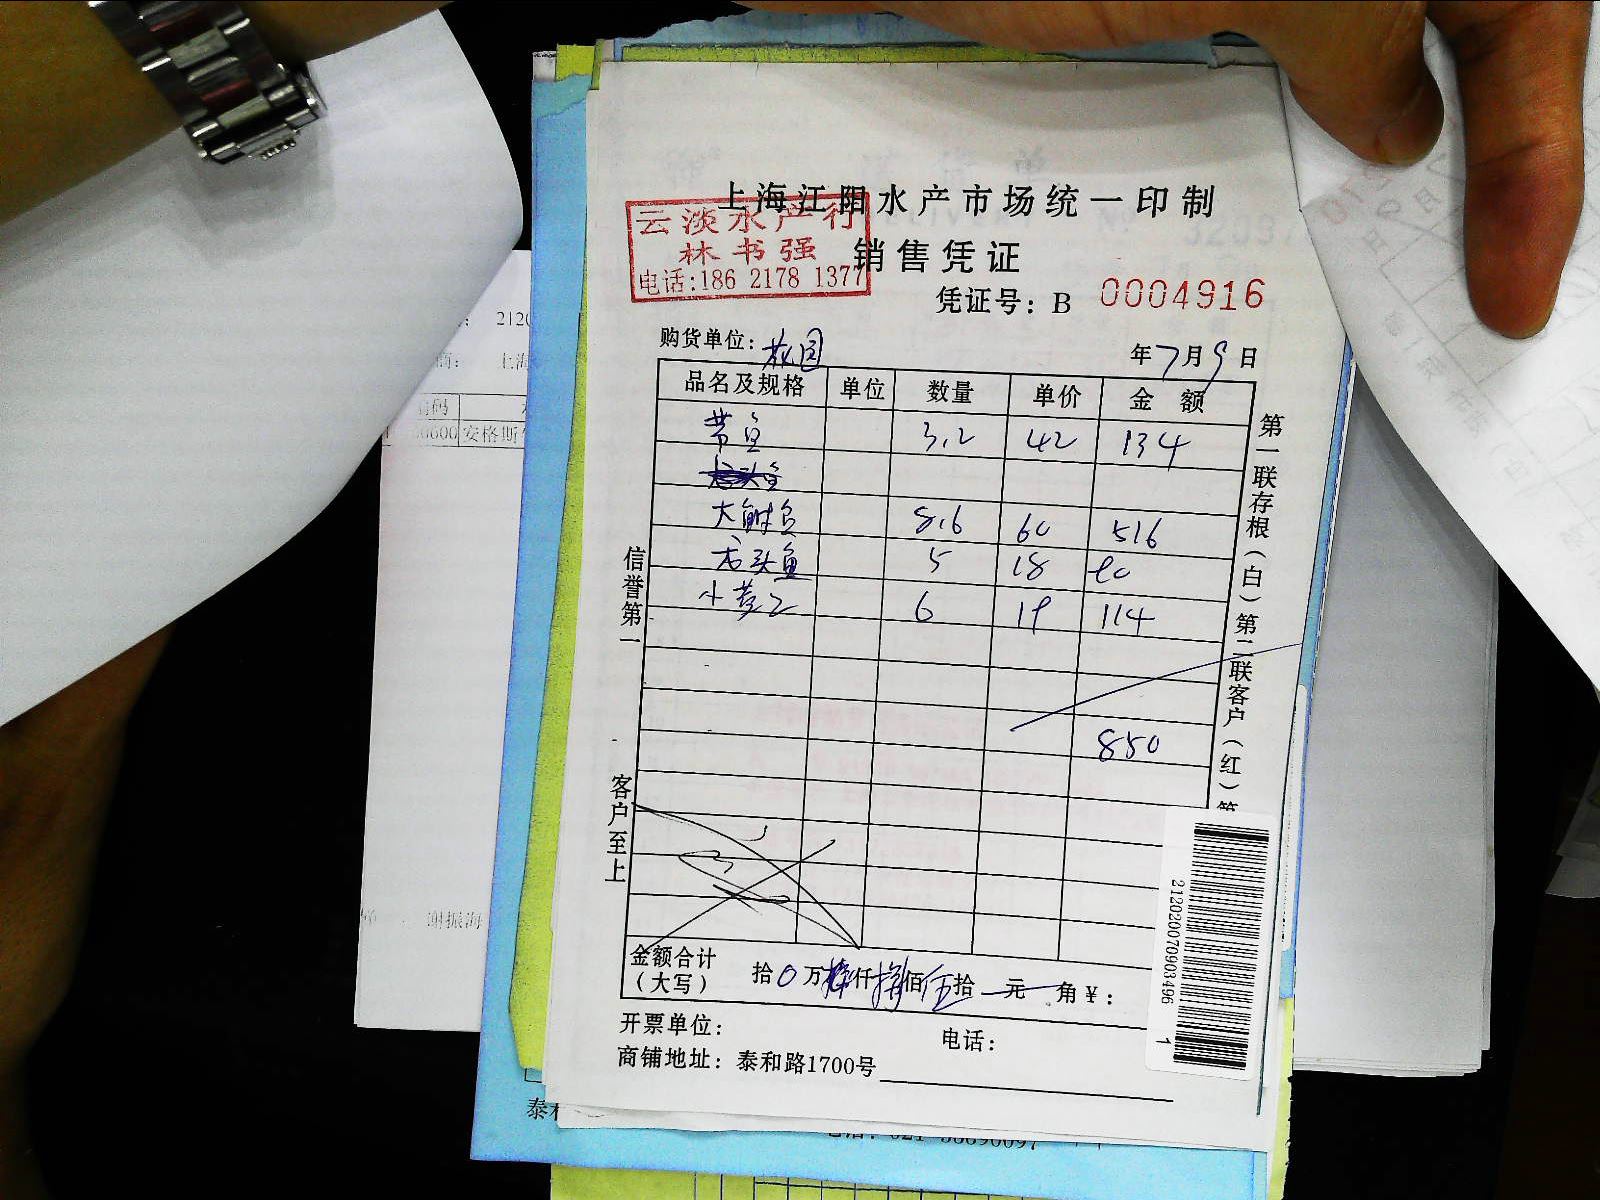 上海江阳水产市场统一印制
云淡水产行
林书强
电话:186 2178 1377
销售凭证
凭证号: B 0004916
购货单位: 花园
年7月9日
品名及规格 单位 数量 单价 金 额
3.2 42 134
大 8.6 60 516
龙头鱼 5 18 90
小黄 6 19 114
850
信誉第一
客户至上
第一联存根(白)第二联客户(红)第
金额合计
(大写)
拾0万 仟 捌佰伍拾 元 角¥:
开票单位: 电话:
商铺地址: 泰和路1700号
2120200709903496 1
2120
上海
编码
00600 安格斯
谢振海
泰和
电话: 021-56690097